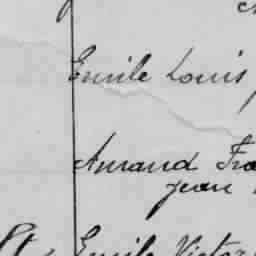 Emile Louis
Amand
Jean
Emile Victor